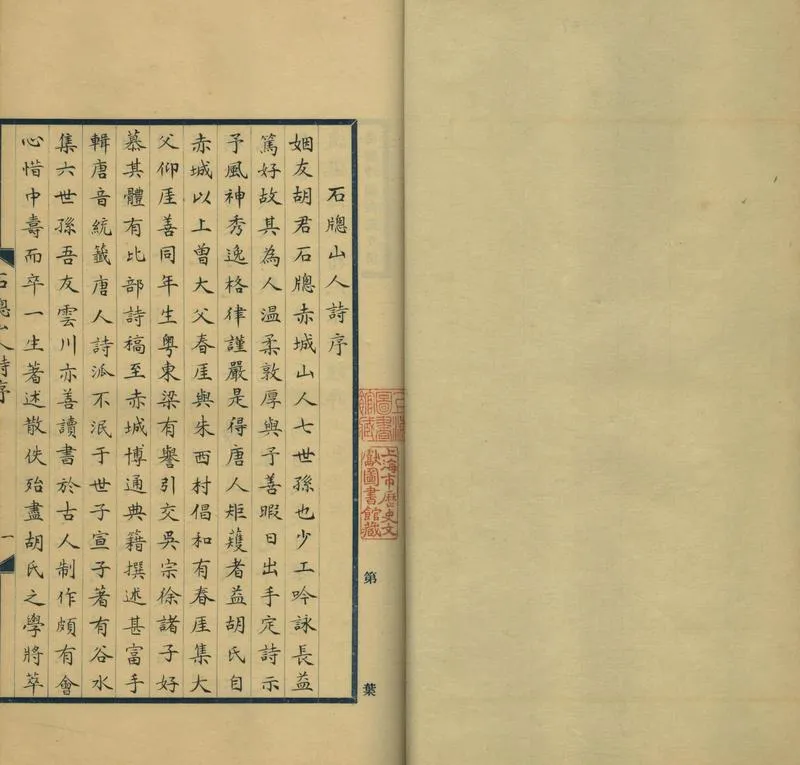 石牕山人詩序
姻友胡君石牕赤城山人七世孫也少工吟詠長益
篤好故其為人溫柔敦厚與予善暇日出手定詩示
予風神秀逸格律謹嚴是得唐人矩矱者益胡氏自
赤城以上曾大父春厓與朱西村倡和有春厓集大
父仰厓善同年生粵東梁有譽引交吳宗徐諸子好
慕其體有比部詩稿至赤城博通典籍撰述甚富手
輯唐音統籤唐人詩派不泯于世子宣子著有谷水
集六世孫吾友雲川亦善讀書於古人制作頗有會
心惜中壽而卒一生著述散佚殆盡胡氏之學將萃
石牕山人詩序
一
上海圖書館藏
上海市歷史文獻圖書館藏
第
葉